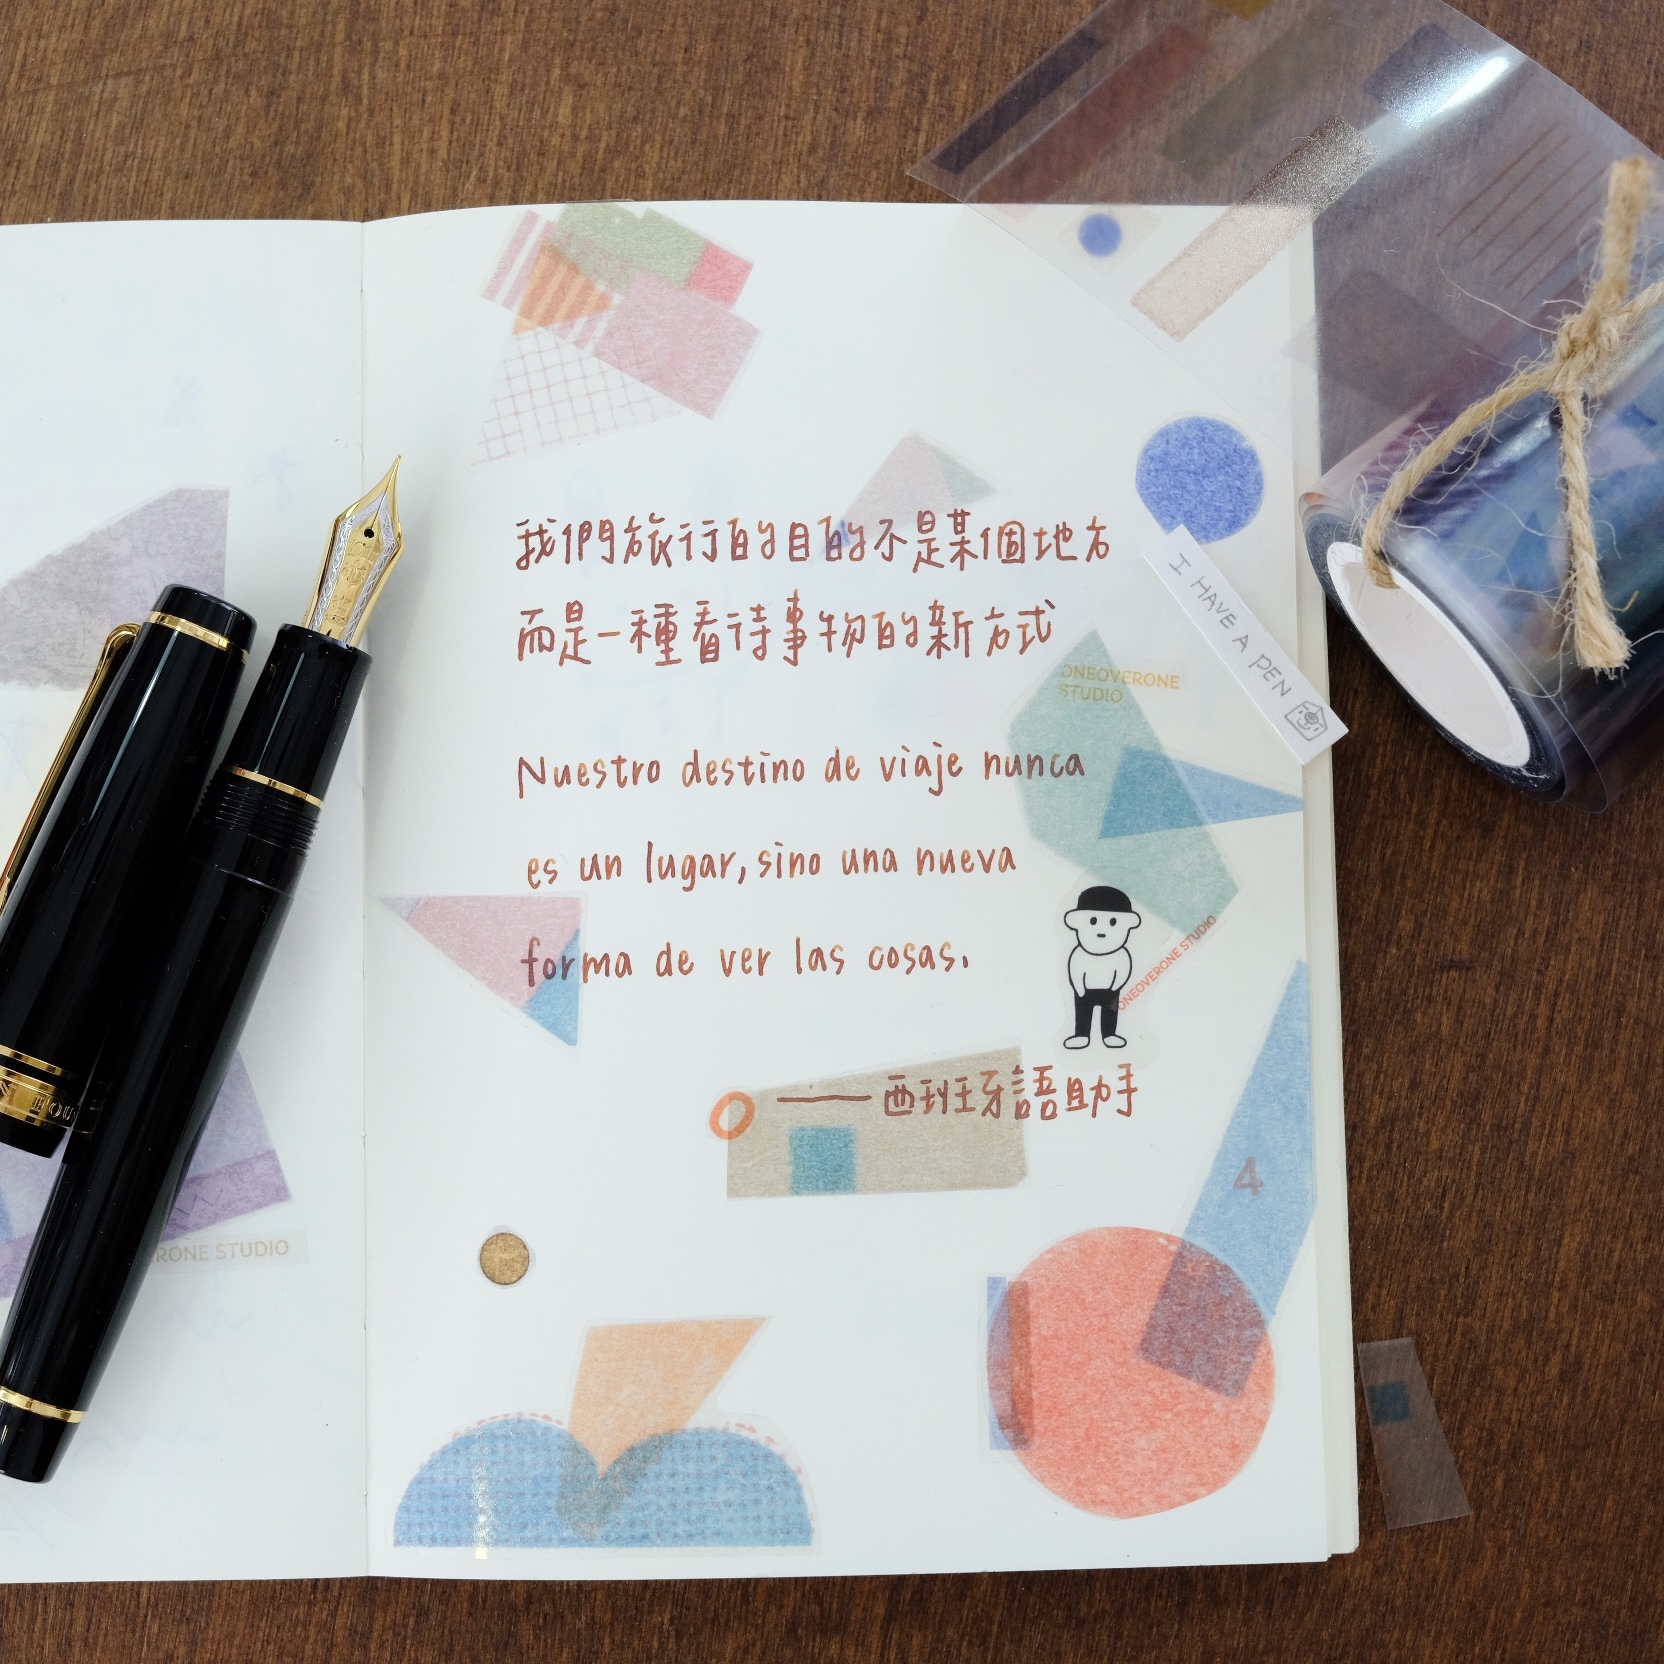 我們旅行的目的不是某個地方
而是一種看待事物的新方式
I HAVE A PEN
ONEOVERONE
STUDIO
Nuestro destino de viaje nunca
es un lugar, sino una nueva
forma de ver las cosas.
ONEOVERONE STUDIO
——西班牙語助手
4
RONE STUDIO